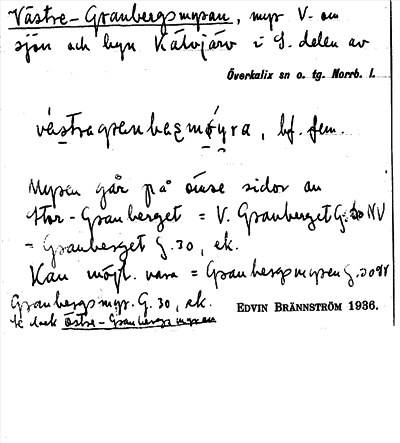 Västre-Granbergsmyran, myr V. om
sjön och byn Kälvjärv i S. delen av
Överkalix sn o. tg. Norrb. l.
västragranbærmøyra, bf. fem.
Myren går på ömse sidor om
Stor-Granberget = V. Granberget G. 30 NV
= Granberget G. 30, ek.
Kan möjl. vara = Granbergsmyren G. 30 NV
Granbergsmyr. G. 30, ek.
Jfr dock Östre-Granbergsmyran
EDVIN BRÄNNSTRÖM 1936.